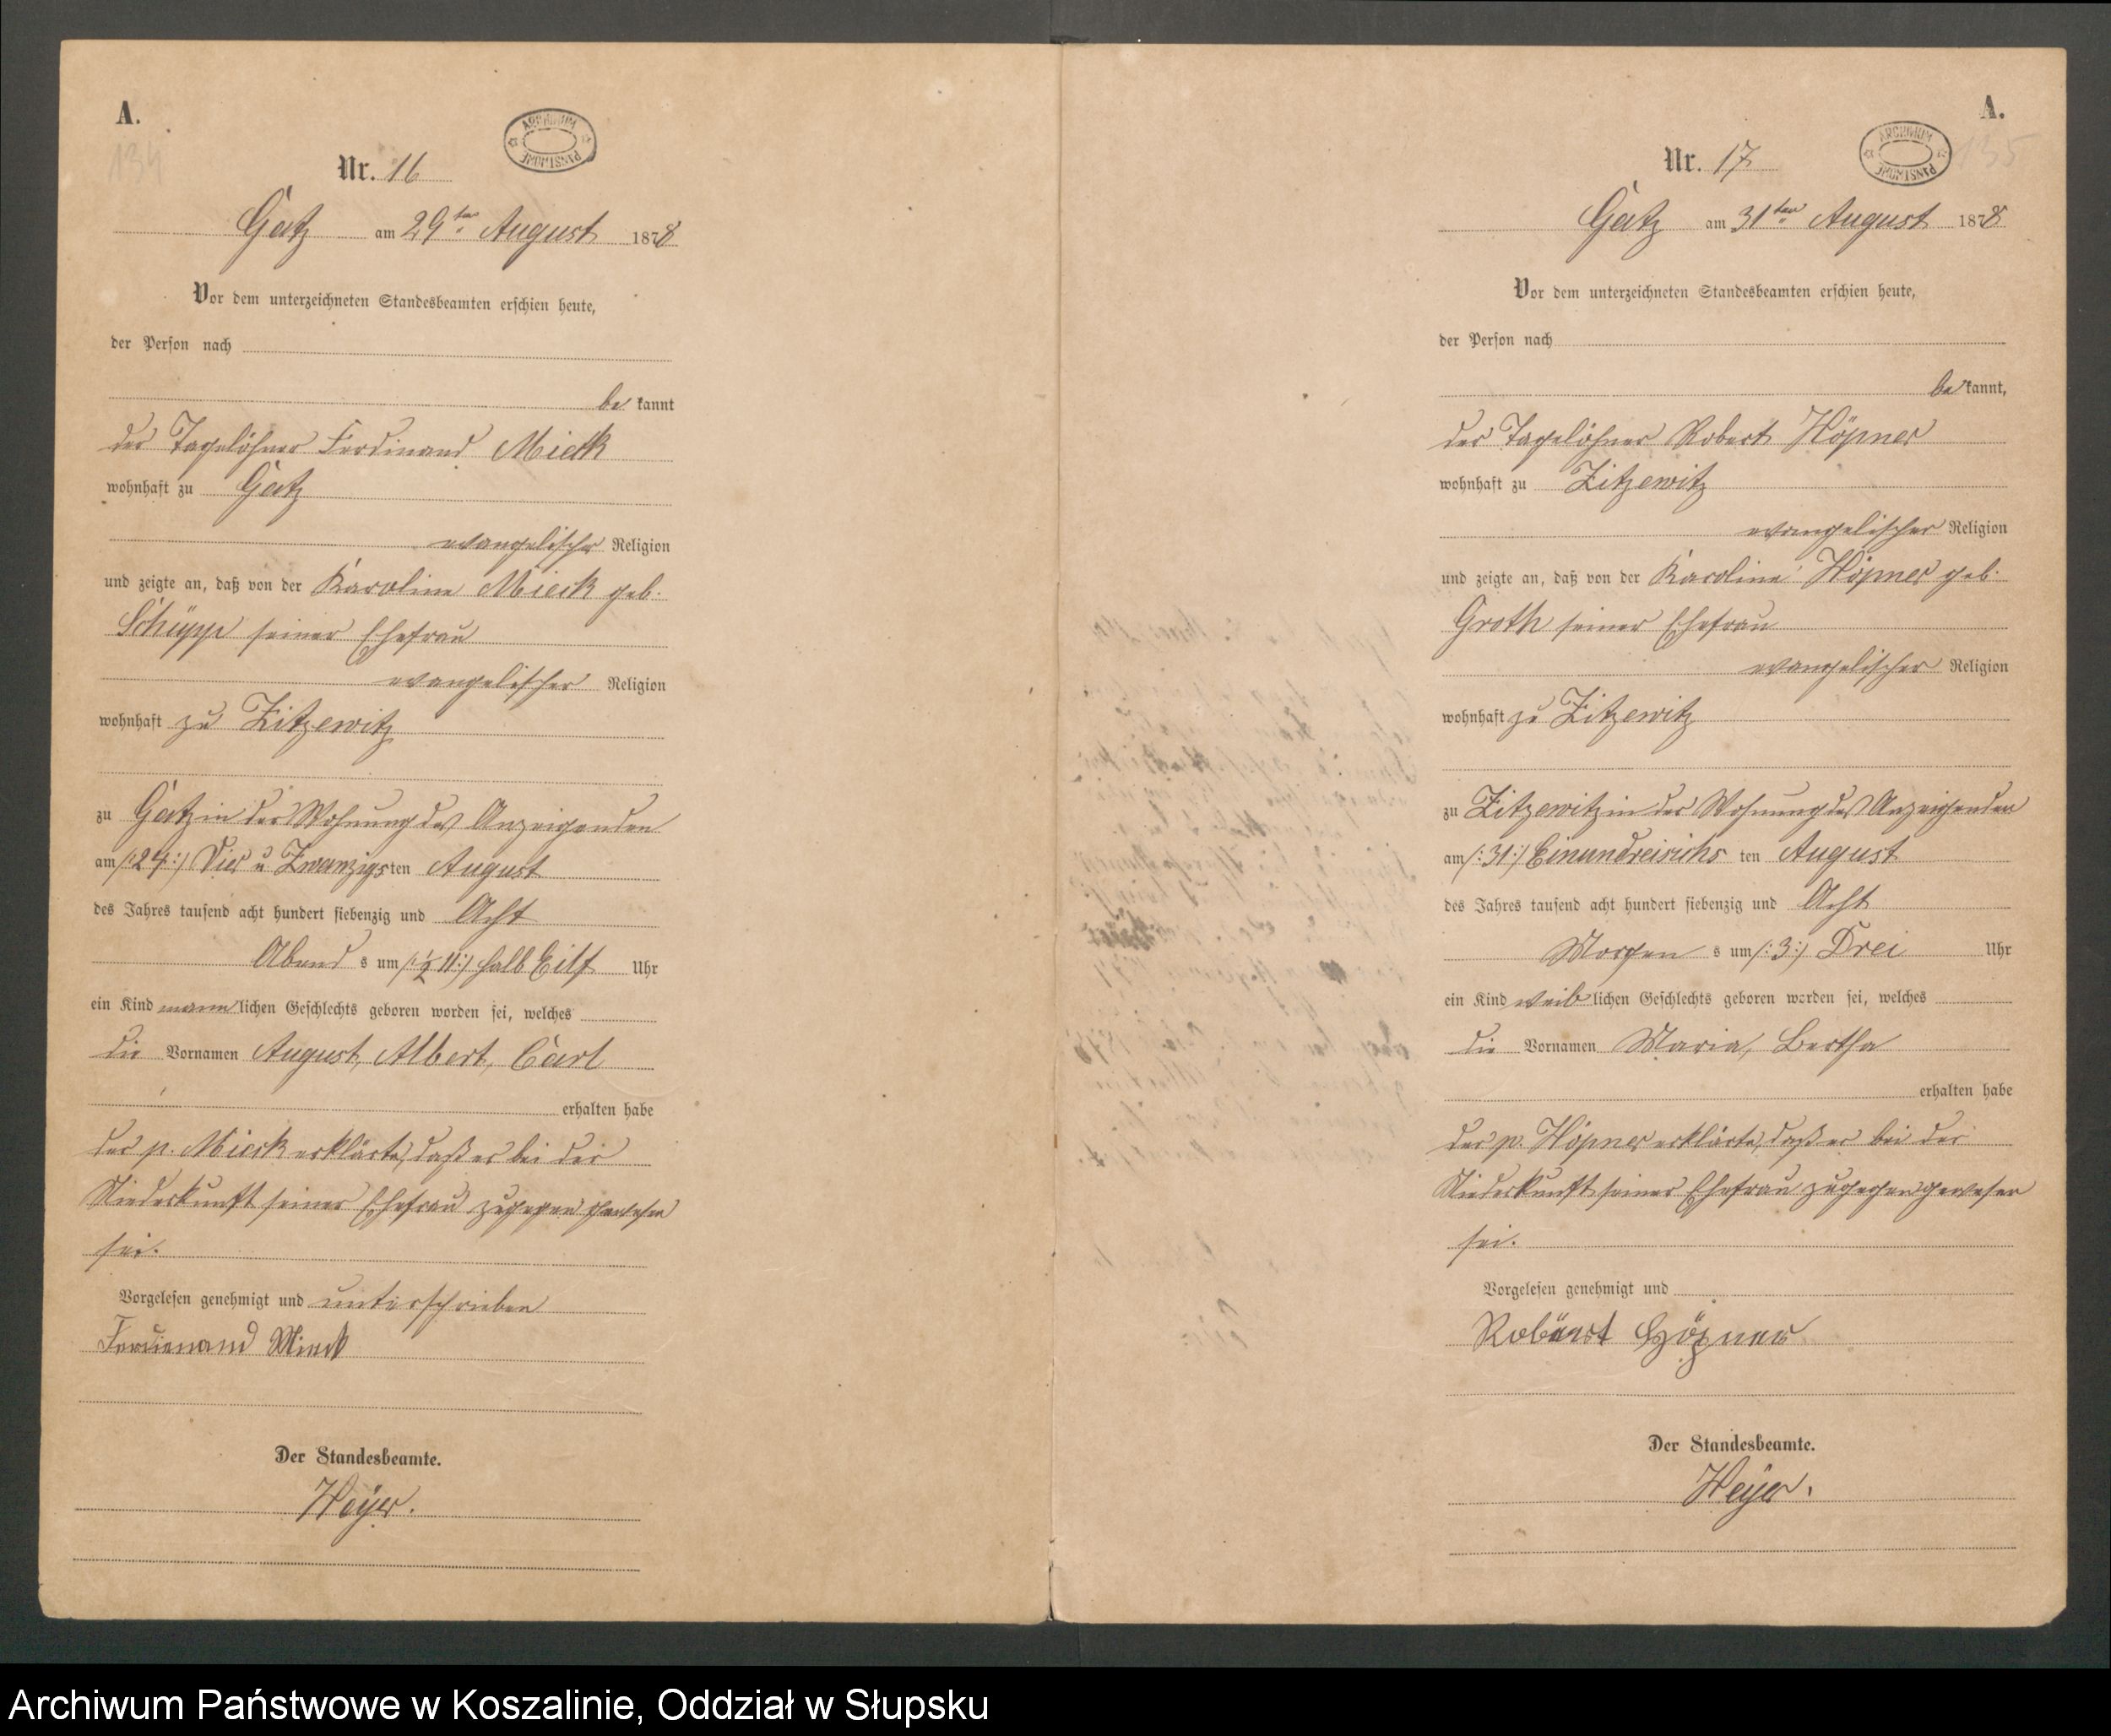 A.
134
Nr. 16
ARCHIWUM PAŃSTWOWE
Gatz am 29ten August 1878
Vor dem unterzeichneten Standesbeamten erschien heute,
der Person nach
be kannt
der Tagelöhner Ferdinand Mieck
wohnhaft zu Gatz
evangelischer Religion
und zeigte an, daß von der Karoline Mieck geb.
Schüpp seiner Ehefrau
evangelischer Religion
wohnhaft zu Zitzewitz
zu Gatz in der Wohnung des Anzeigenden
am /:24:/ Vier u. Zwanzigsten August
des Jahres tausend acht hundert siebenzig und Acht
Abend s um /:½ 11:/ halb Eilf Uhr
ein Kind männlichen Geschlechts geboren worden sei, welches
die Vornamen August, Albert, Carl
erhalten habe
der p. Mieck erklärte, daß er bei der
Niederkunft seiner Ehefrau zugegen gewesen
sei.
Vorgelesen genehmigt und unterschrieben
Ferdienand Mieck
Der Standesbeamte.
Heyer.
A.
135
Nr. 17
ARCHIWUM PAŃSTWOWE
Gatz am 31ten August 1878
Vor dem unterzeichneten Standesbeamten erschien heute,
der Person nach
be kannt,
der Tagelöhner Robert Höpner
wohnhaft zu Zitzewitz
evangelischer Religion
und zeigte an, daß von der Karoline Höpner geb.
Groth seiner Ehefrau
evangelischer Religion
wohnhaft zu Zitzewitz
zu Zitzewitz in der Wohnung des Anzeigenden
am /:31:/ Einundreisichs ten August
des Jahres tausend acht hundert siebenzig und Acht
Morgen s um /:3:/ Drei Uhr
ein Kind weiblichen Geschlechts geboren worden sei, welches
die Vornamen Maria, Bertha
erhalten habe
der p. Höpner erklärte, daß er bei der
Niederkunft seiner Ehefrau zugegen gewesen
sei.
Vorgelesen genehmigt und
Robärt Höpner
Der Standesbeamte.
Heyer.
Archiwum Państwowe w Koszalinie, Oddział w Słupsku